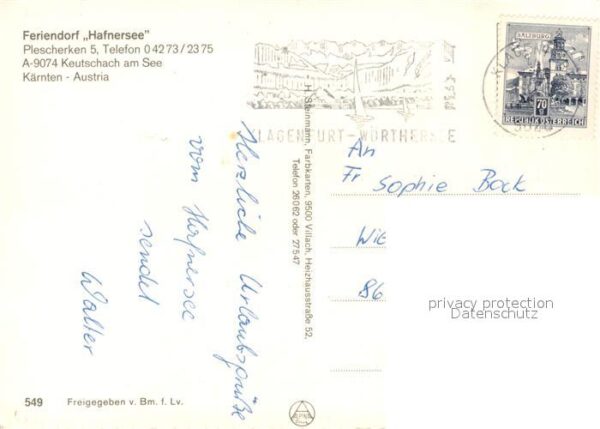 Feriendorf „Hafnersee"
Plescherken 5, Telefon 0 42 73 / 23 75
A-9074 Keutschach am See
Kärnten - Austria
Herzliche Urlaubsgrüße
vom Hafnersee
sendet
Walter
H. Steinmann, Farbkarten, 9500 Villach, Heizhausstraße 52,
Telefon 26062 oder 27547
KLAGENFURT-WÖRTHERSEE
SALZBURG
70
REPUBLIK ÖSTERREICH
An
Fr Sophie Bock
Wie
86
privacy protection
Datenschutz
549 Freigegeben v. Bm. f. Lv.